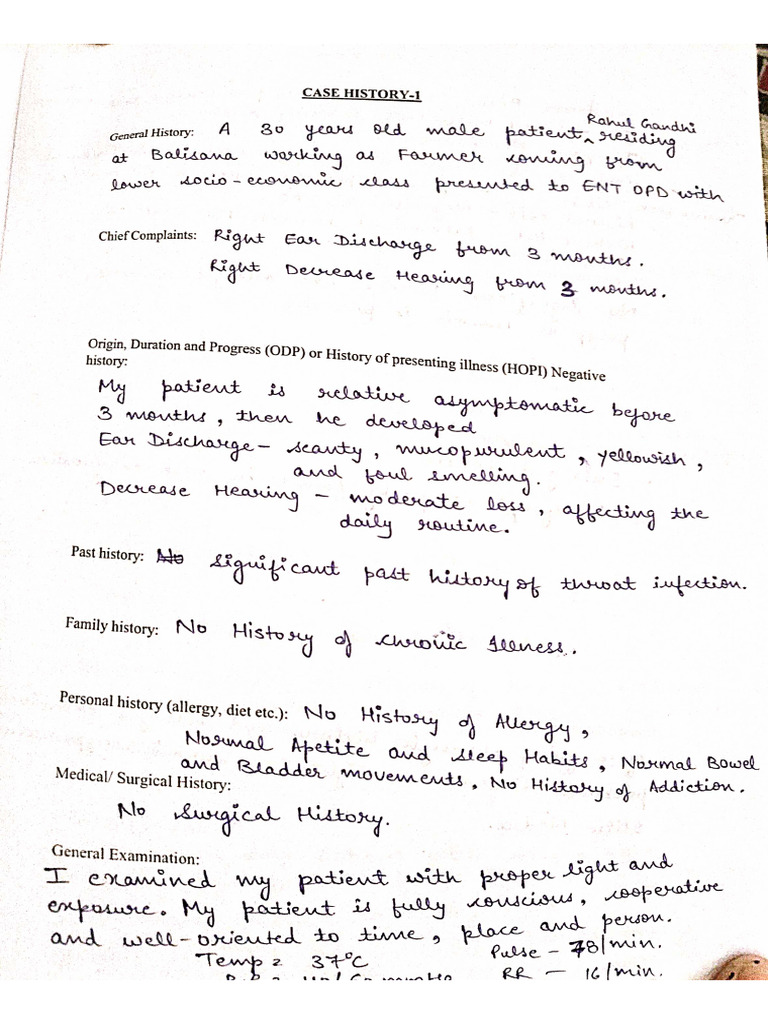 CASE HISTORY-1
General History: A 30 years old male patient ^ Rahul Gandhi residing
at Balisana working as Farmer coming from
lower socio-economic class presented to ENT OPD with
Chief Complaints: Right Ear Discharge from 3 months.
Right Decrease Hearing from 3 months.
Origin, Duration and Progress (ODP) or History of presenting illness (HOPI) Negative
history:
My patient is relative asymptomatic before
3 months, then he developed
Ear Discharge - scanty, mucopurulent, yellowish,
and foul smelling.
Decrease Hearing - moderate loss, affecting the
daily routine.
Past history: No significant past history of throat infection.
Family history: No History of Chronic Illness.
Personal history (allergy, diet etc.): No History of Allergy,
Normal Apetite and Sleep Habits, Normal Bowel
and Bladder movements, No History of Addiction.
Medical/ Surgical History:
No Surgical History.
General Examination:
I examined my patient with proper light and
exposure. My patient is fully conscious, cooperative
and well-oriented to time, place and person.
Temp = 37°C Pulse - 78/min.
RR - 16/min.